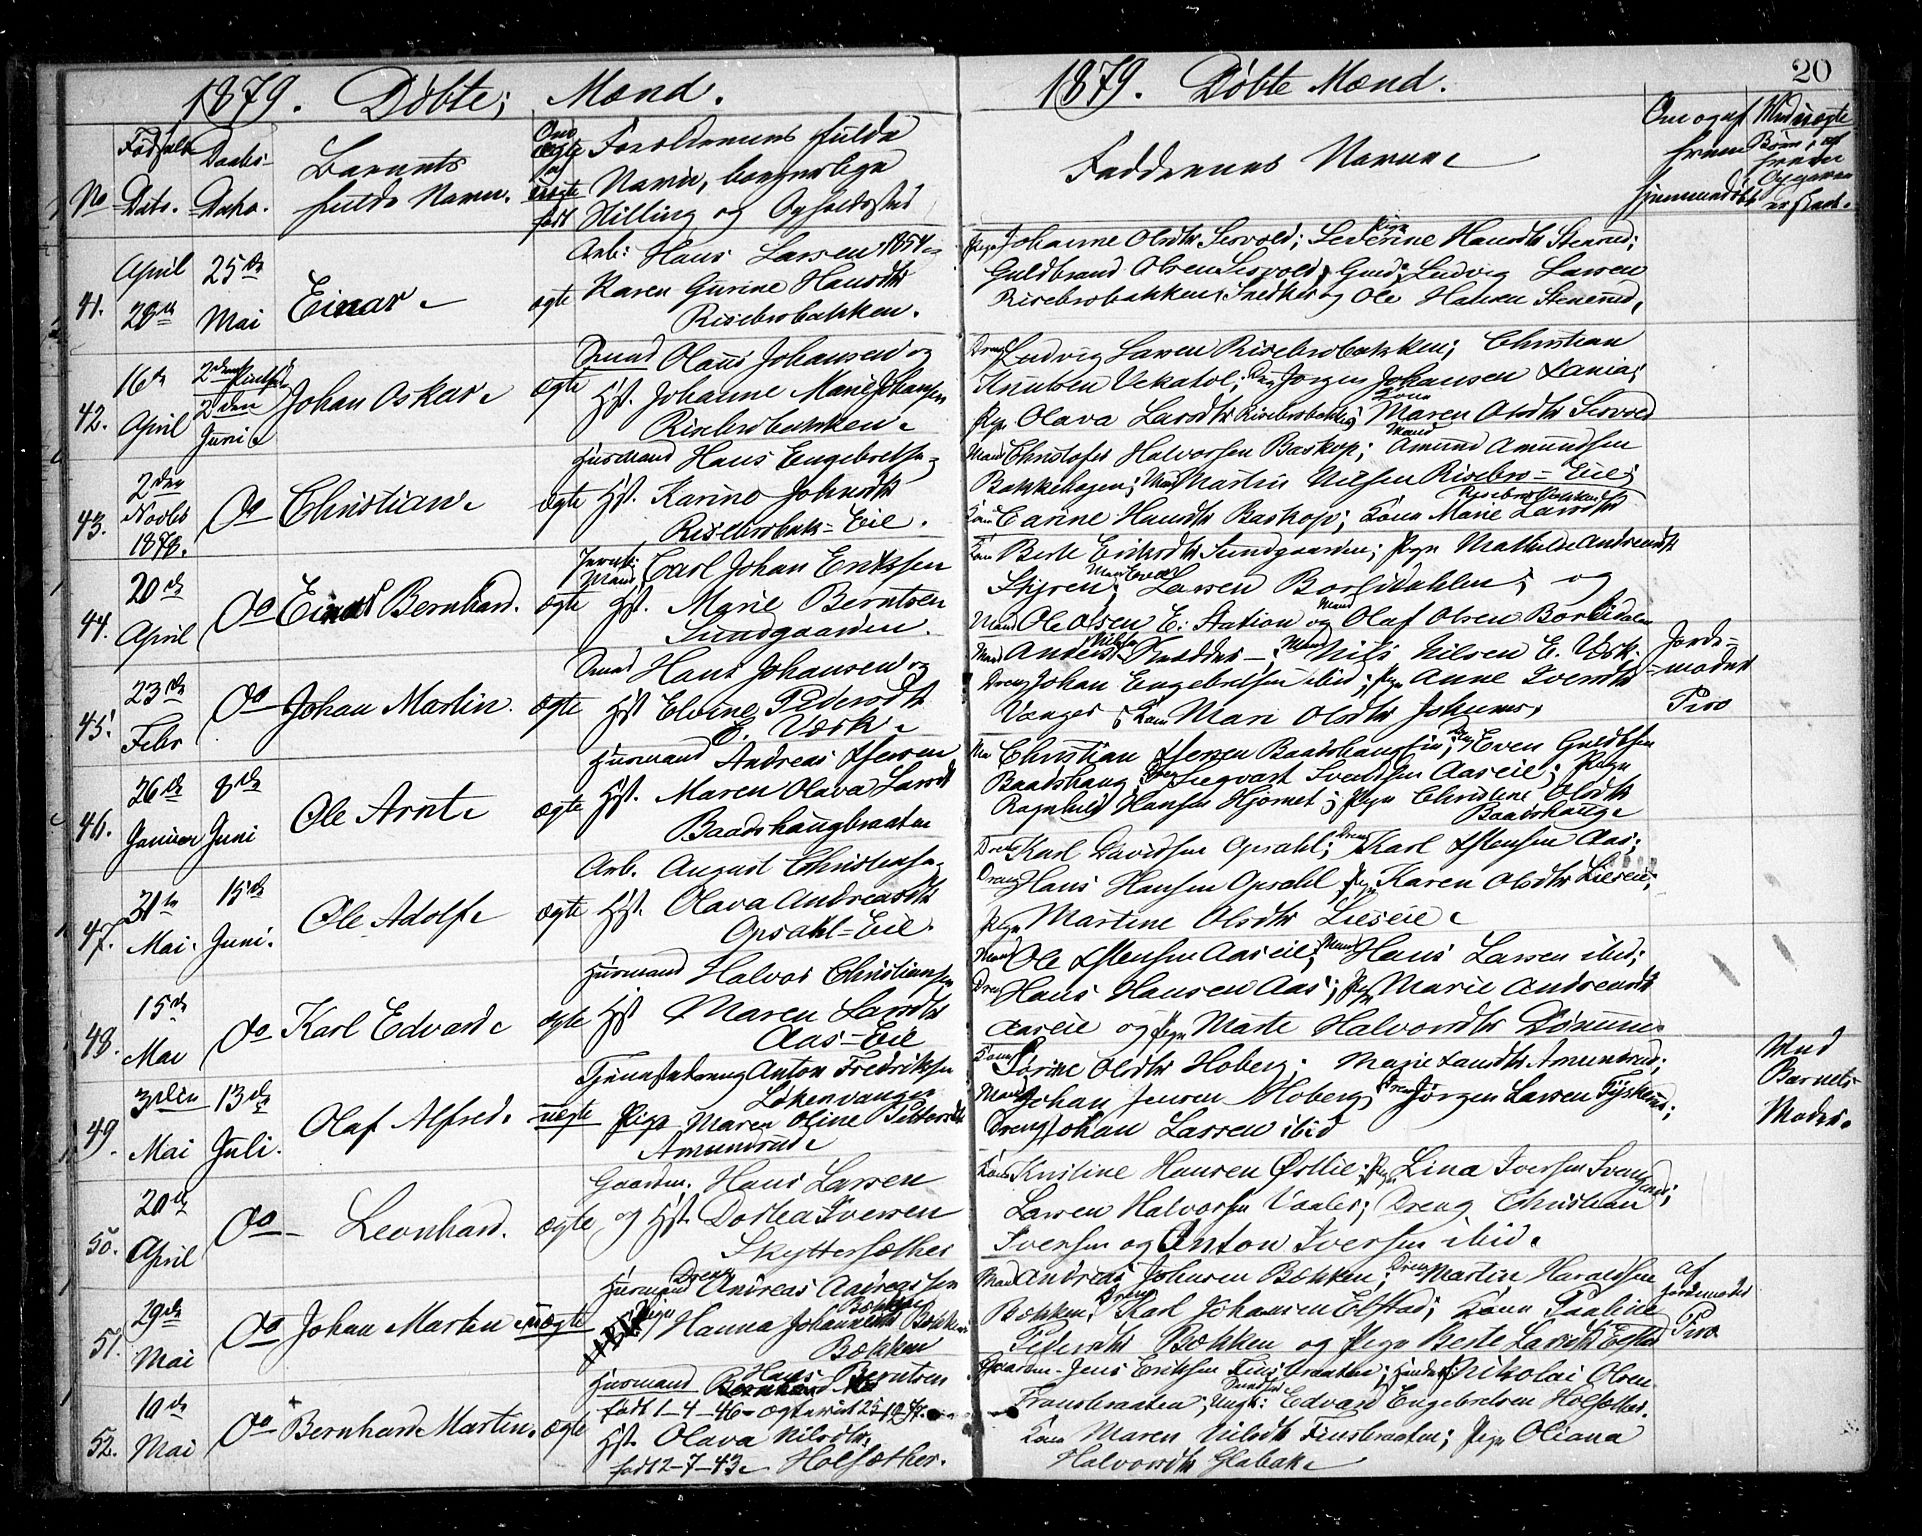 1879. Døbte; Mænd.
No
Fødsels
Dato.
Daabs-
Dato.
Barnets
fulde Navn.
Om
ægte
uægte
født
Forældrenes fulde
Navn, borgerlige
Stilling og Opholdssted
41.
April
25de
Mai
Einar
ægte
Arb: Hans Larsen 1854
Karen Gurine Hansdtr
Risebrobakken.
42.
16de
April
2den
Juni
Johan Oskar
ægte
Smed Olaus Johansen og
Hst. Johanne Marie Johansen
Risebrobakken
43.
2den
Novbr
1878.
Do
Christian
ægte
Husmand Hans Engebretsen
Hst. Karine Johnsdtr
Risebrobak-Eie.
44.
20de
April
Do
Einar Bernhard.
ægte
Carl Johan Eriksen
Hst. Marie Berntsen
Sundgaarden.
45.
23de
Febr
Do
Johan Martin.
ægte
Smed Hans Johansen og
Hst Elvine Pedersdtr
E. Værk
46.
26de
Januar
8de
Juni
Ole Arnt
ægte
Husmand Andreas Iversen
Hst. Maren Olava Larsd
Baadshaugbraaten
47.
31te
Mai.
15de
Juni.
Ole Adolf
ægte
Arb. August Christensen
Hst. Olava Andreasdtr
Opsahl-Eie.
48.
15de
Mai
Do
Karl Edvard
ægte
Husmand Halvor Christiansen
Hst Maren Larsdtr
Aas-Eie
49.
3die
Mai
13de
Juli.
Olaf Alfred.
uægte
Tjenestedreng Anton Fredriksen
Løkenvangen
Pige Maren Oline Pettersdtr
Amundrud
50.
20de
April
Do
Leonhard.
ægte
Gaardm. Hans Larsen
og Hst. Dorthea Iversen
Skyttersæther
51.
29de
Mai
Do
Johan Martin
uægte
Husmand Dreng Andreas Andreassen
Bækken
Pige Hanna Johannesdtr Bækken
Bækken
52.
10de
Mai
Do
Bernhard Martin.
ægte
Husmand Hans Berntsen
født 1-4-46
Hst. Olava Nilsdtr.
født 2-7-43 Holsæther.
1879. Døbte Mænd.
20
Faddernes Navne
Om og af
hvem
hjemmedøbt
Ved uægte
Børn, af
hvem
Opgaven
er skeet.
Pige Johanne Olsdtr Sorvold; Pige Severine Hansdtr Stenrud;
Guldbrand Olsen Sorvold; Gmd: Ludvig Larsen
Risebrobakken; Snedker og Ole Hansen Stenrud.
Dreng Ludvig Larsen Risebrobakken; Christian
Knutsen Vekatol; Dreng Jørgen Johansen Lania;
Pige Olava Larsdtr Risebrobakken; Kone Maren Olsdtr Sorvold
Mand Christofer Halvorsen Baskop; Mand Amund Amundsen
Bakkehagen; Mand Martin Nilsen Risebro-Eie;
Kone Carine Hansdtr Baskop; Kone Marie Larsdtr
Risebrobakken
Kone Berte Eriksdtr Sundgaarden; Pige Mathilde Andreasdtr
Skjæren; Mand Edvard Larsen Borlidahlen; og
Mand Ole Olsen E: Station og Mand Olaf Olsen Borlidalen
Mand Anders Nilsen; Mand Nils Nilsen E. Værk.
Dreng Johan Engebretsen ibid; Pige Anne Iversdtr
Vanger; Kone Mari Olsdtr Johnsrud.
Jorde-
moder
Piro
Christian Iversen Baadshaugen; Dreng Even Guldbsen
Baadshaug; Dreng Segvart Svendsen Aaseie; Pige
Ragnhild Hansen Hjornet; Pige Christine Olsdtr
Baadshaug
Dreng Karl Davidsen Opsahl; Dreng Karl Estensen Aas;
Dreng Hans Hansen Opsahl Pige Karen Olsdtr Lieseie;
Pige Martine Olsdtr Lieseie
Mand Ole Estensen Aaseie; Mand Hans Larsen ibid;
Dreng Hans Hansen Aas; Pige Marie Andreasdt
Aaseie og Pige Marte Halvorsdtr
Kone Sørine Olsdtr Hoberg; Marie Larsdtr Amundrud;
Mand Johan Jensen Hoberg; Dreng Jørgen Larsen Tyskerud;
Dreng Johan Larsen ibid
Med
Barnets
Moder.
Kone Kristine Hansen Østlie; Pige Lina Iversen Svangerud;
Larsen Halvorsen Vaaler; Dreng Christian
Iversen og Anton Iversen ibid.
Mand Andreas Johnsen Bækken; Dreng Martin Haraldsen
Bækken; Dreng Karl Johansen Elstad; Kone Pauline
Pedersdtr Bækken og Pige Berte Larsdtr Elstad
af
Jordemoder
Piro
Gaardm. Jens Eriksen Finsbraaten; Nikolai Olsen
Fransbraaten; Ungk: Edvard Engebretsen Holsæther.
Kone Maren Nilsdtr Finsbraaten; Pige Oliana
Halvorsdtr Glabak